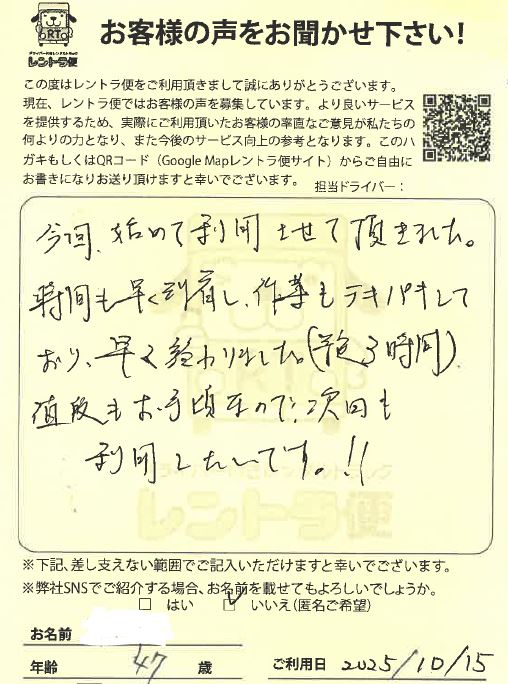 お客様の声をお聞かせ下さい!
RT
ドライバー付きレンタルトラック
レントラ便
この度はレントラ便をご利用頂きまして誠にありがとうございます。
現在、レントラ便ではお客様の声を募集しています。より良いサービス
を提供するため、実際にご利用頂いたお客様の率直なご意見が私たちの
何よりの力となり、また今後のサービス向上の参考となります。このハ
ガキもしくはQRコード（Google Mapレントラ便サイト）からご自由に
お書きになりお送り頂けますと幸いでございます。 担当ドライバー：
今回、始めて利用させて頂きました。
時間も早く到着し、作業もテキパキして
おり、早く終わりました。(約3時間)
値段もお手頃なので、次回も
利用したいです。!!
レントラ便
※下記、差し支えない範囲でご記入いただけますと幸いでございます。
※弊社SNSでご紹介する場合、お名前を載せてもよろしいでしょうか。
□ はい ☑ いいえ(匿名ご希望)
お名前
年齢 47 歳 ご利用日 2025/10/15